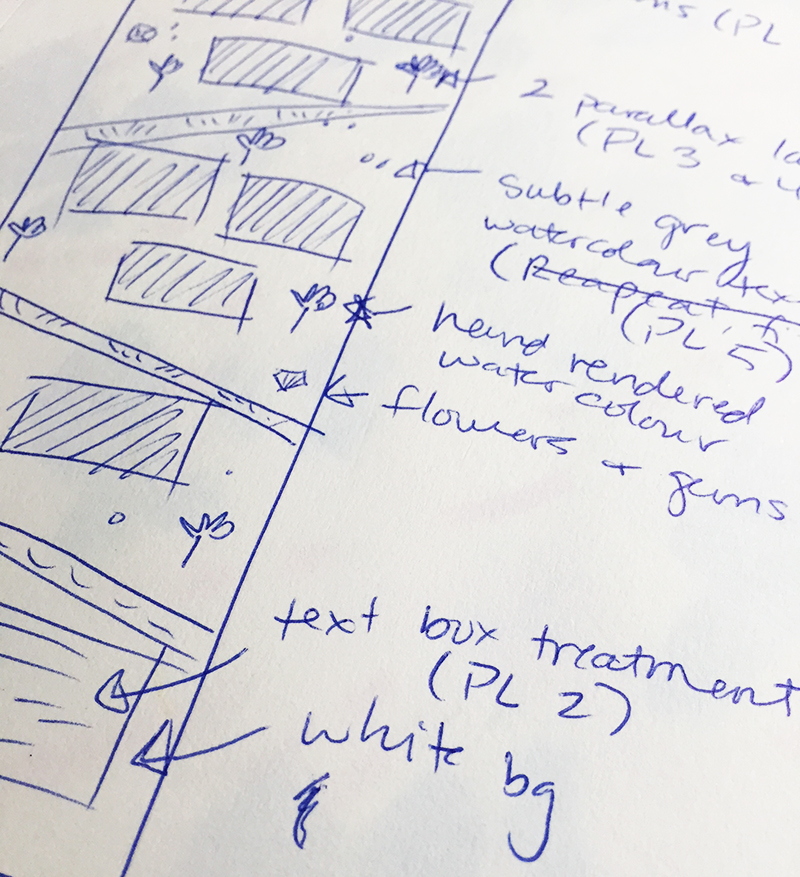 (PL
2 parallax
(PL 3 + 4
Subtle grey
watercolour
(Reapeat,
(PL 5)
hand rendered
watercolour
flowers + gems
text box treatment
(PL 2)
white bg